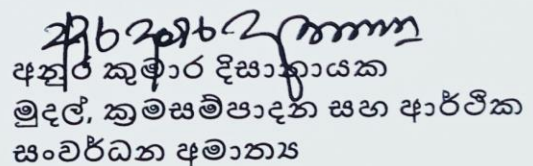 අනුර කුමාර දිසානායක
මුදල්, ක්‍රමසම්පාදන සහ ආර්ථික
සංවර්ධන අමාත්‍ය